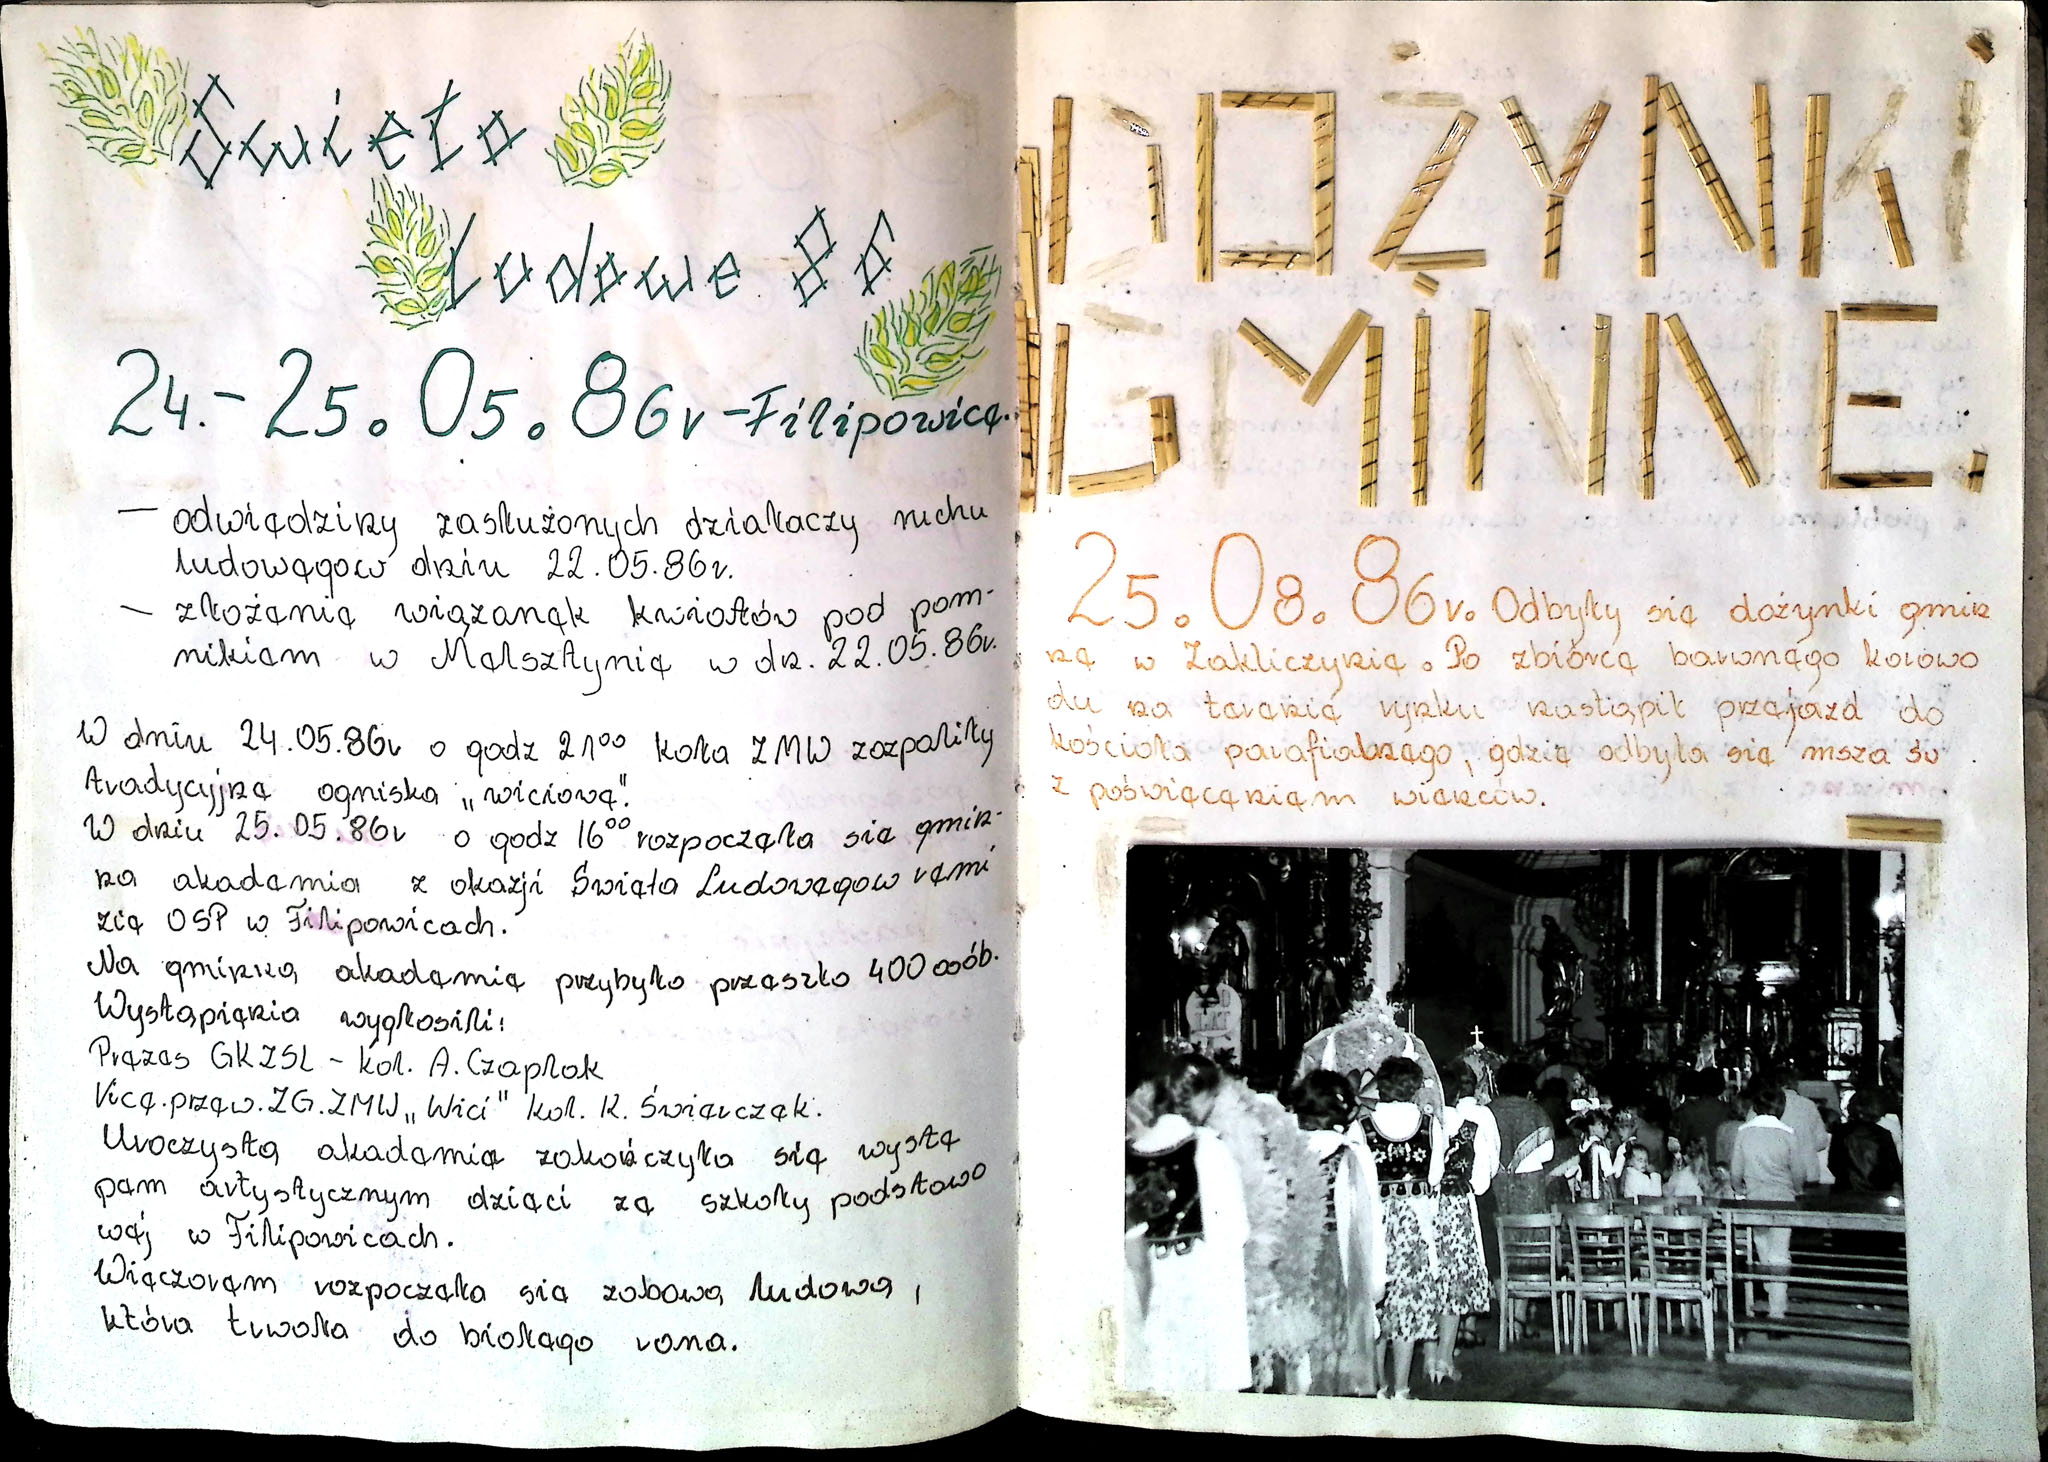 Święto
Ludowe 86
24.-25.05.86r - Filipowice.
— odwiedziny zasłużonych działaczy ruchu
ludowegow dniu 22.05.86r.
— złożenie wiązanek kwiatów pod pom-
nikiem w Melsztynie w dn. 22.05.86r.
W dniu 24.05.86r o godz 21⁰⁰ koła ZMW rozpaliły
tradycyjne ogniska „wiciowe".
W dniu 25.05.86r o godz 16⁰⁰ rozpoczęła się gmin-
na akademia z okazji Święta Ludowegow remi
zie OSP w Filipowicach.
Na gminną akademię przybyło przeszło 400 osób.
Wystąpienia wygłosili:
Prezes GKZSL - kol. A. Czaplak
Vice.przew.ZG.ZMW„Wici" kol. K. Świerczek.
Uroczysta akademia zakończyła się wystę
pem artystycznym dzieci ze szkoły podstawo
wej w Filipowicach.
Wieczorem rozpoczęła się zabawa ludowa,
która trwała do białego rana.
DOŻYNKI
GMINNE.
25.08.86r. Odbyły się dożynki gmin
ne w Zakliczynie. Po zbiórce barwnego korowo
du na terenie rynku nastąpił przejazd do
kościoła parafialnego, gdzie odbyła się msza św.
z poświęceniem wieńców.